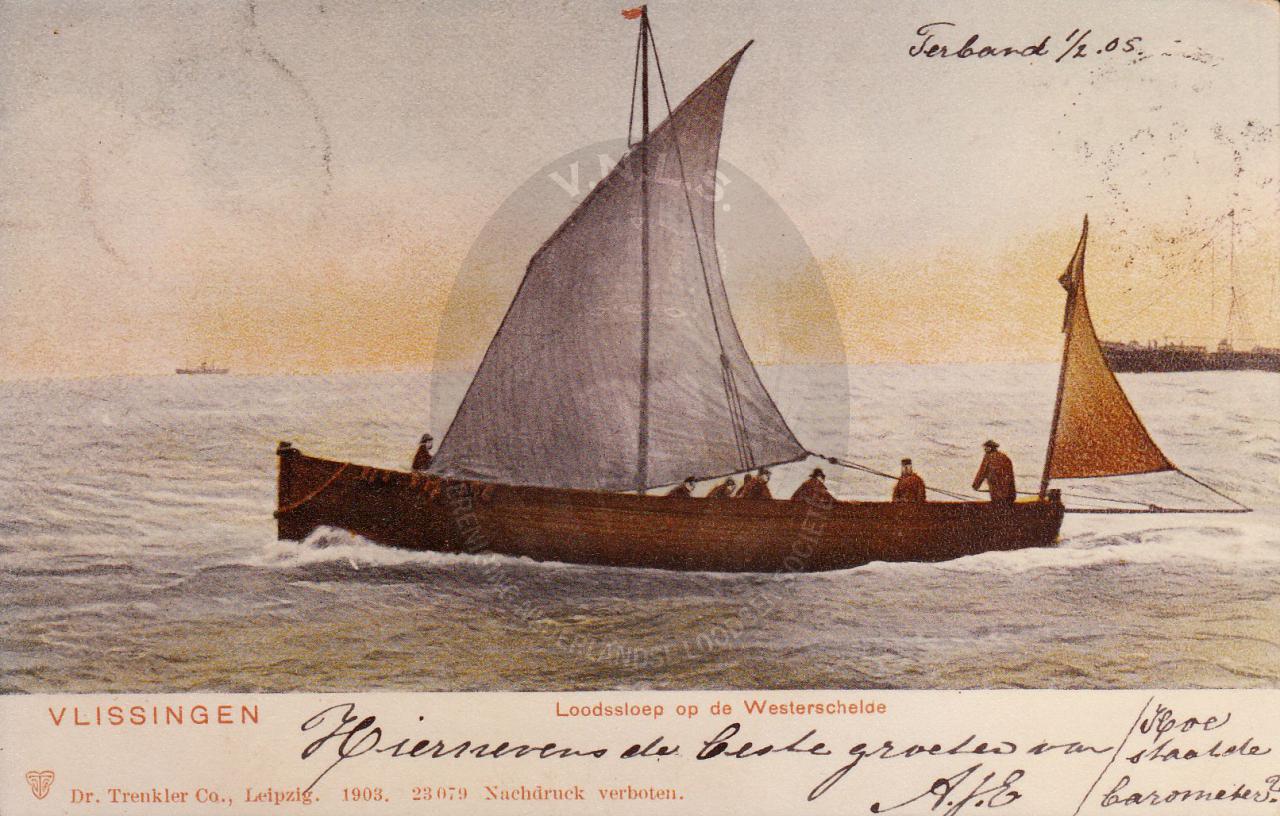 Terband 1/2.05.
V.N.L.S.
VERENIGDE NEDERLANDSE LOODSEN SOCIETEIT
VLISSINGEN
Loodssloep op de Westerschelde
Hiernevens de beste groeten van
A.J.E
Hoe
staat de
barometer?
Dr. Trenkler Co., Leipzig. 1903. 23079 Nachdruck verboten.